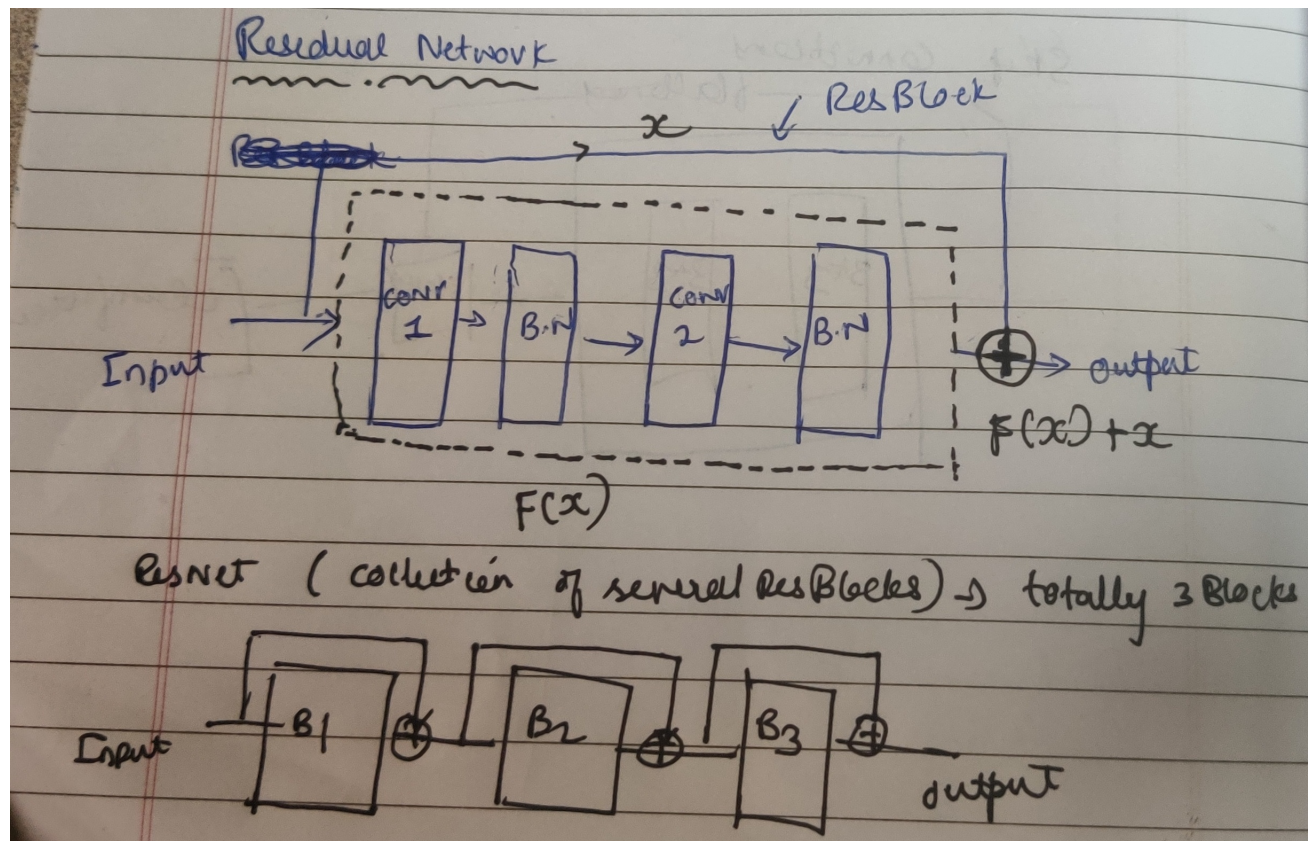 Residual Network
ResBlock
x
CONV 1
B.N
CONV 2
B.N
Input
output
F(x) + x
F(x)
ResNet ( collection of several ResBlocks) → totally 3 Blocks
B1
B2
B3
Input
output